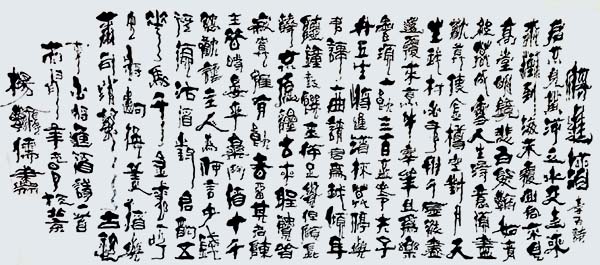 將進酒 李白詩
君不見黃河之水天上來
奔流到海不復回君不見
高堂明鏡悲白髮朝如青
絲暮成雪人生得意須盡
歡莫使金樽空對月天
生我材必有用千金散盡
還復來烹羊宰牛且為樂
會須一飲三百杯岑夫子
丹丘生將進酒杯莫停與
君歌一曲請君為我傾耳
聽鐘鼓饌玉何足貴但願長
醉不願醒古來聖賢皆
寂寞惟有飲者留其名陳
王昔時宴平樂斗酒十千
恣歡謔主人為何言少錢
徑須沽酒對君酌五
花馬千金裘呼
兒將出換美酒與
爾同銷萬古愁
李白將進酒詩一首
楊儒書